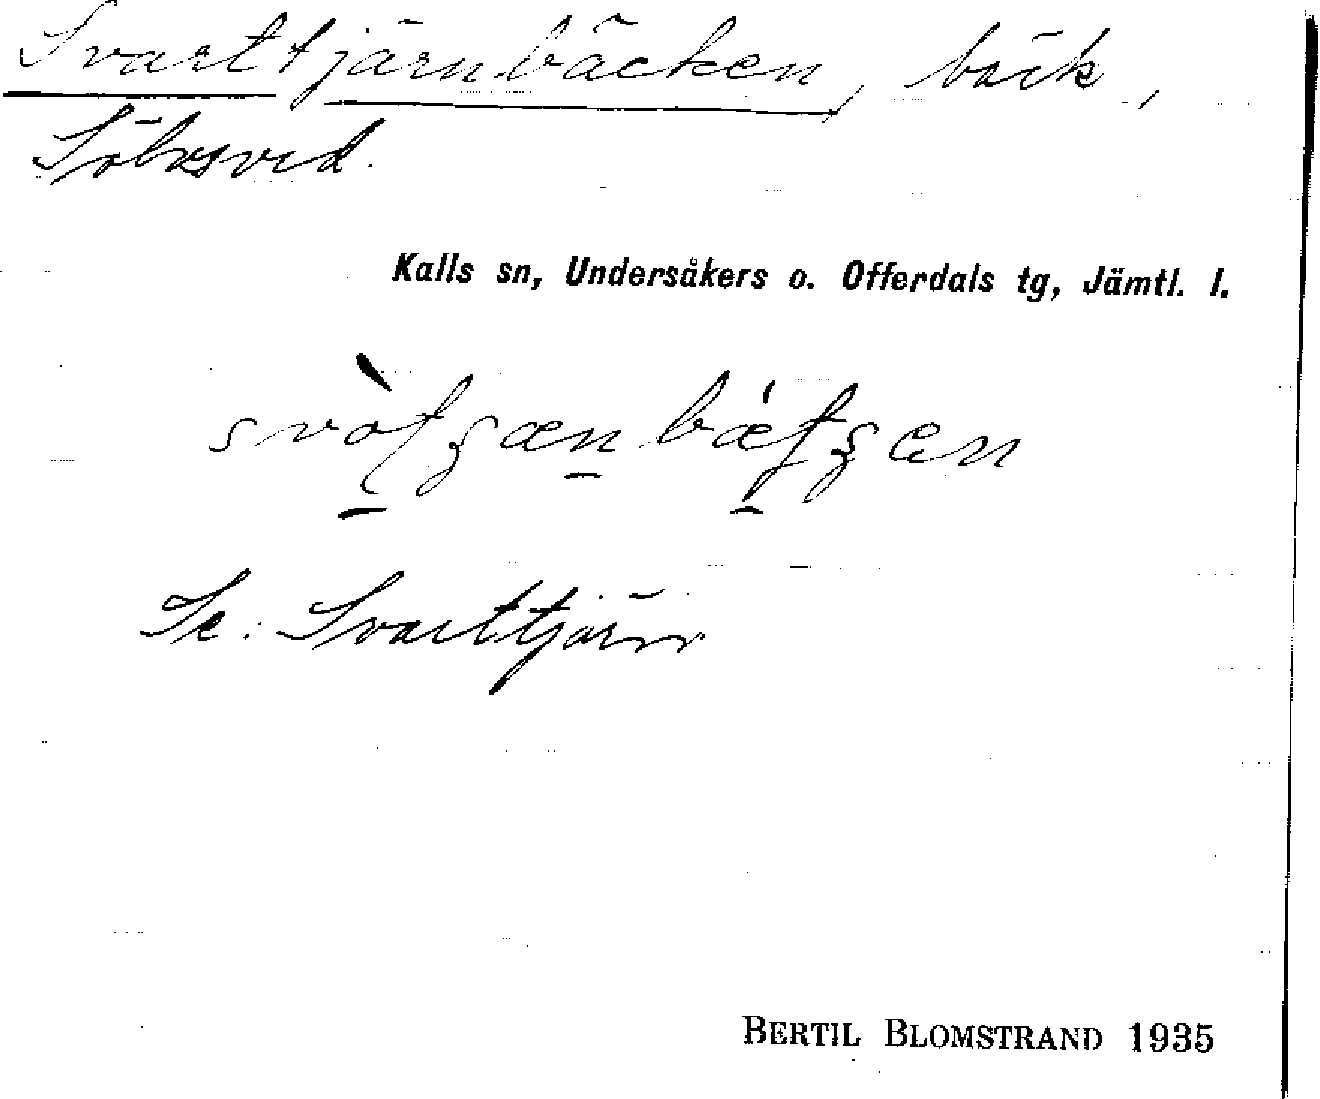 Svarttjärnbäcken, bäck,
Sölvsved.
Kalls sn, Undersåkers o. Offerdals tg, Jämtl. l.
Se: Svarttjärn
BERTIL BLOMSTRAND 1935